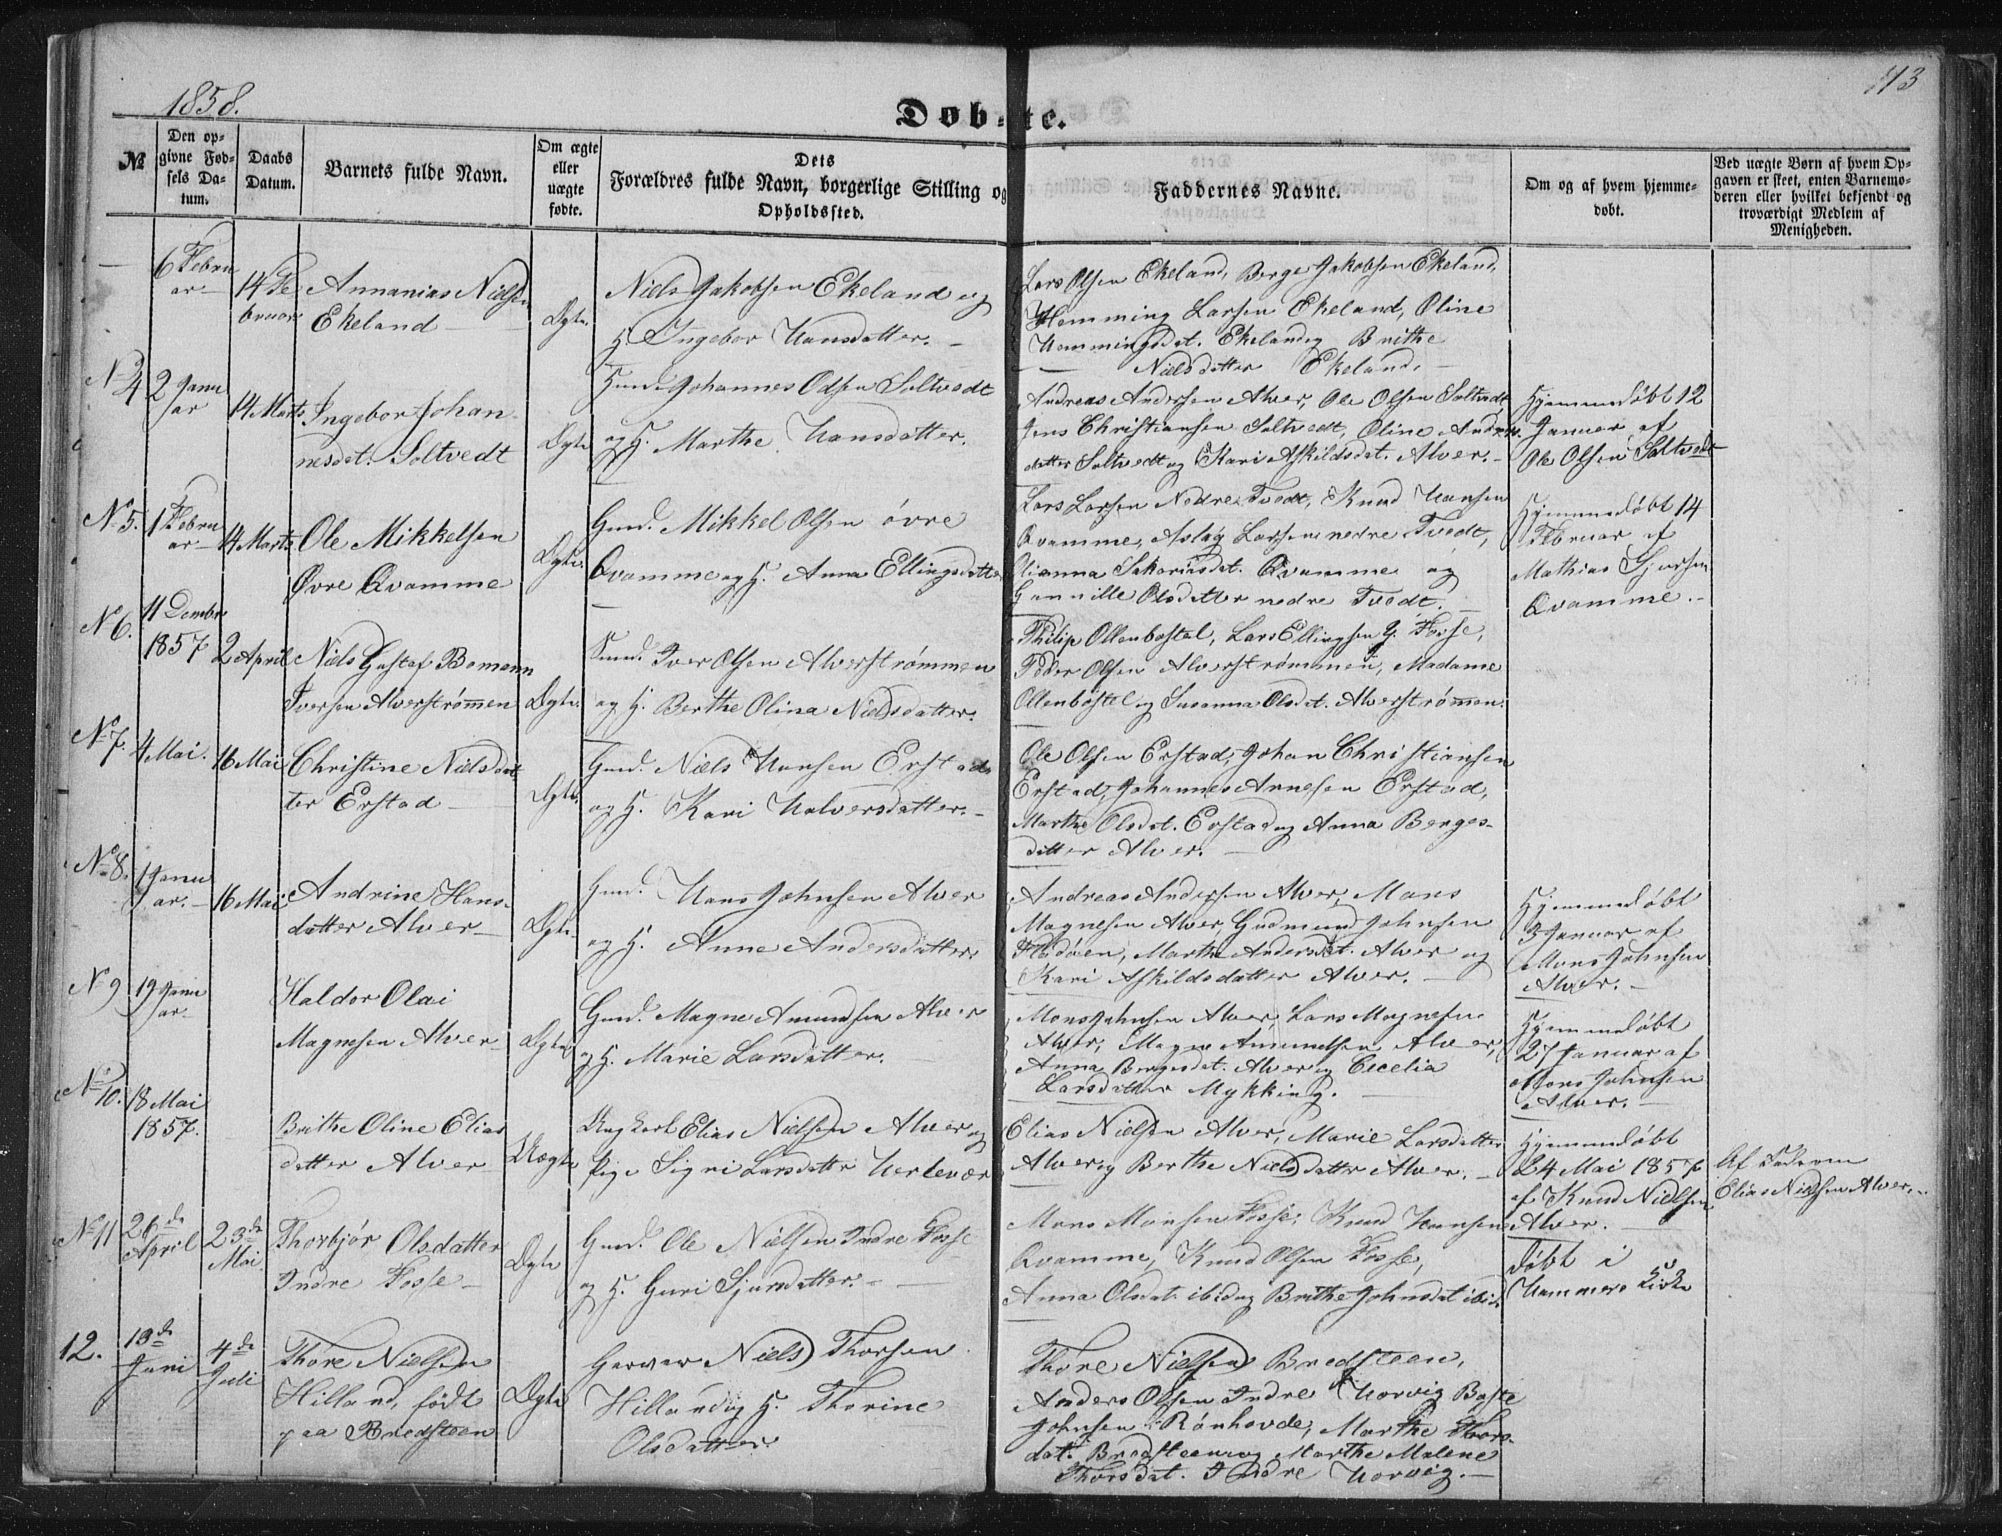 1858.
Døbte.
№
Den op-
givne Fød-
sels Da-
tum.
Daabs
Datum.
Barnets fulde Navn.
Om ægte
eller
uægte
fødte.
Dets
Forældres fulde Navn, borgerlige Stilling og
Opholdssted.
Faddernes Navne.
Om og af hvem hjemme-
døbt.
Ved uægte Børn af hvem Op-
gaven er skeet, enten Barnemo-
deren eller hvilket bekjendt og
troværdigt Medlem af
Menigheden.
6 Febru
ar
14 Fe
bruar
Annanias Nielsen
Ekeland
Ægte.
Niels Jakobsen Ekeland og
H. Ingebor Hansdatter.
Lars Olsen Ekeland, Berge Jakobsen Ekeland,
Hemming Larsen Ekeland, Oline
Hemmingsdat. Ekeland og Brithe
Nielsdatter Ekeland.
No 4
2 Janu
ar
14 Marts
Ingebor Johan
nesdat. Soltvedt
Ægte
Gmd. Johannes Olsen Soltvedt
og H. Marthe Hansdatter.
Andreas Andersen Alver, Ole Olsen Soltvedt,
Jens Christiansen Soltvedt, Oline Anders-
datter Soltvedt og Kari Askildsdat. Alver.
Hjemmedøbt 12
Januar af
Ole Olsen Soltvedt
No 5.
1 Febru
ar
14 Marts
Ole Mikkelsen
Øvre Qvamme
Ægte.
Gmd. Mikkel Olsen øvre
Qvamme og H. Anna Ellingsdatter
Lars Larsen Nedre Tvedt, Knud Hansen
Qvamme, Aslag Larsen nedre Tvedt,
Sakariasdat. Qvamme og
Gunnille Olsdatter nedre Tvedt.
Hjemmedøbt 14
Februar af
Mathias Sjursen
Qvamme.
No 6.
11 Decembr
1857
2 April
Niels Gustaf Bomann
Iversen Alverstrømmen
Ægte.
Iver Olsen Alverstrømmen
og H. Berthe Olina Nielsdatter.
Philip Ollenbostel, Lars Ellingsen Y. Fosse,
Peder Olsen Alverstrømmen, Madame
Ollenbostel og Susanna Olsdat. Alverstrømmen.
No 7.
4 Mai.
16 Mai
Christine Nielsdat
ter Erstad
Ægte.
Gmd. Niels Hansen Erstad
og H. Kari Halversdatter.
Ole Olsen Erstad, Johan Christiansen
Erstad, Johannes Arnesen Erstad,
Marthe Olsdat. Erstad og Anna Berges-
datter Alver.
No 8.
1 Janu
ar.
16 Mai
Andrine Hans-
datter Alver
Ægte.
Gmd. Hans Johnsen Alver
og H. Anne Andersdatter.
Andreas Andersen Alver, Mons
Magnesen Alver, Gudmund Johnsen
Fladøen, Marthe Andersdat. Alver og
Kari Askildsdatter Alver.
Hjemmedøbt
3 Januar af
Mons Johnsen
Alver.
No 9
19 Janu
ar
Haldor Olai
Magnesen Alver
Ægte
Gmd. Magne Amundsen Alver
og H. Marie Larsdatter.
Mons Johnsen Alver, Lars Magnesen
Alver, Magne Amundsen Alver,
Anna Bergesdat. Alver og Cicelia
Larsdatter Mykking.
Hjemmedøbt
27 Januar af
Mons Johnsen
Alver.
No 10.
18 Mai
1857.
Brithe Oline Elias
datter Alver
Uægte
Ungkarl Elias Nielsen Alver og
Pige Sigri Larsdatter Herlevær
Elias Nielsen Alver, Marie Larsdatter
Alver og Berthe Nielsdatter Alver.
Hjemmedøbt
24 Mai 1857
af Knud Nielsen
Alver.
Af Faderen
Elias Nielsen Alver.
No 11
26de
April
23de
Mai
Thorbjør Olsdatter
Indre Fosse
Ægte
Gmd. Ole Nielsen Indre Fosse
og H. Guri Sjursdatter.
Mons Monsen Fosse, Knud Hansen
Qvamme, Knud Olsen Fosse,
Anna Olsdat. ibid. og Brithe Johnsdat ibid.
Døbt i
Hammers Kirke
12.
13de
Juni
4de
Juli
Thore Nielsen
Hilland, født
paa Bredsteen
Ægte
Garver Niels Thorsen
Hilland og H. Thorine
Olsdatter.
Thore Nielsen Bredsteen,
Anders Olsen Indre Horvig Baste
Johnsen Rønhovde, Marthe Thors-
dat. Bredsteen og Marthe Malene
Thorsdat. Indre Horvig.